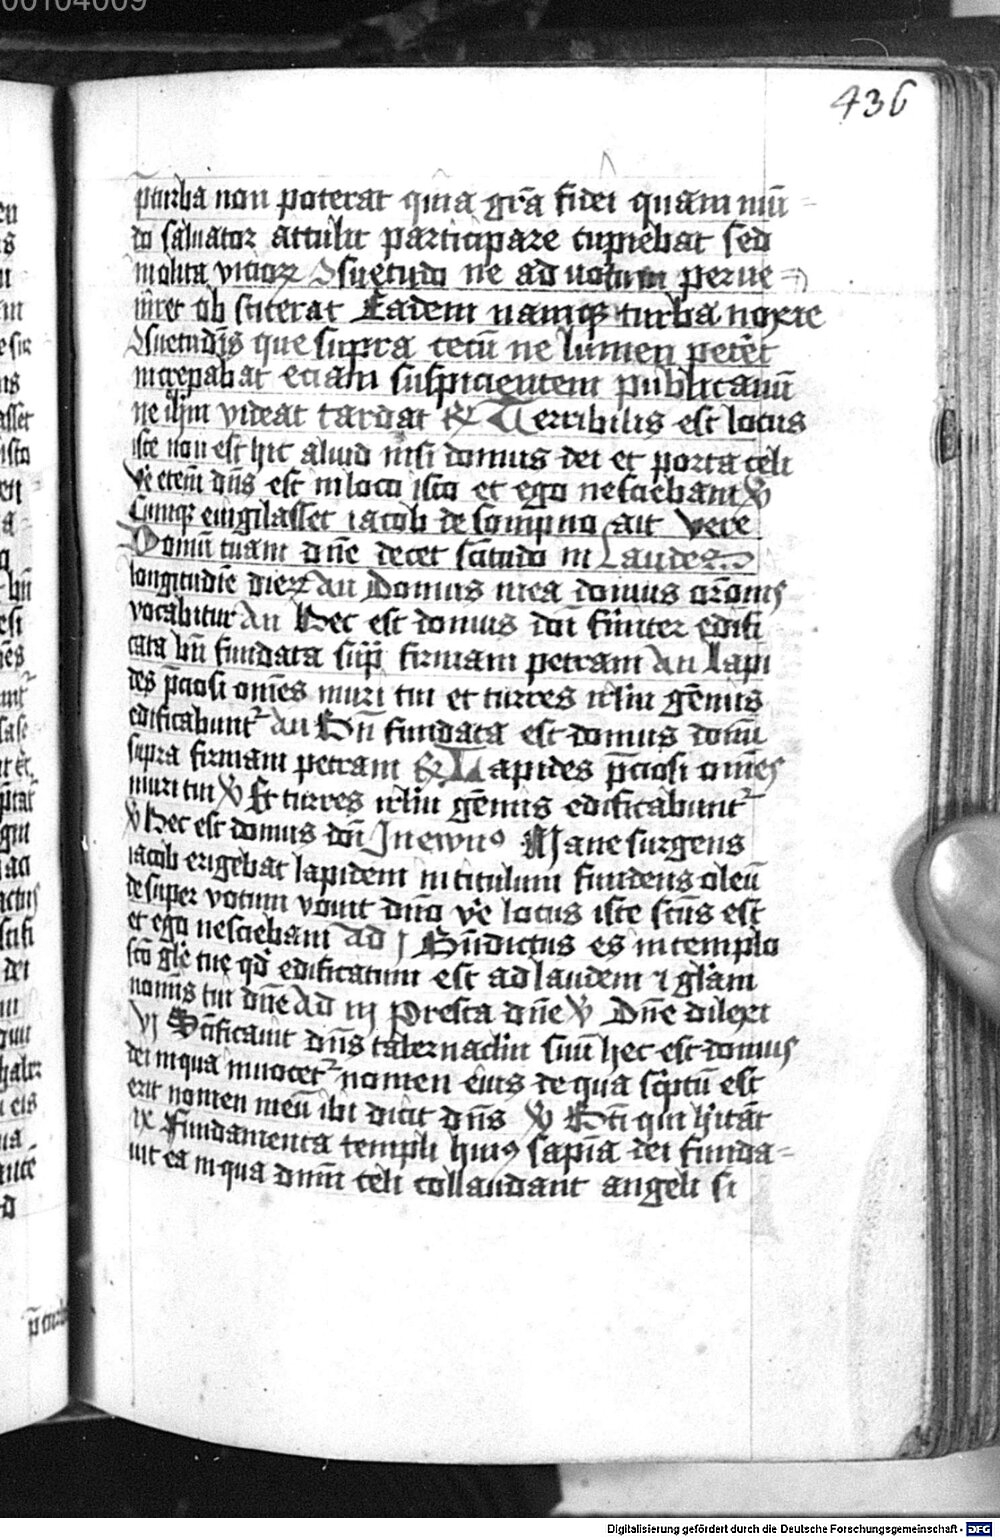 00104009
436
p̄turba non poterat quia grā fidei quam mū=
do saluator attulit participare cupiebat sed
inolita vicioꝝ ꝯsuetudo ne ad uotum perue=
niret ob stiterat Eadem namqꝫ turba noxie
ꝯsuetudīs que supra cecū ne lumen peteret
increpabat eciam suspicientem publicanū
ne ihm videat tardat ℟ Terribilis est locus
iste non est hic aliud nisi domus dei et porta celi
Ve etem dn̄s est in loco isto et ego nesciebam ℣
Cumqꝫ euigilasset iacob de sompno ait vere
Domū tuam dn̄e decet sctitudo in Laudes
longitudīe dieꝝ An Domus mea domus orōnis
vocabitur An Hec est domus dn̄i firmiter edifi
cata bn̄ fundata sup̄ firmam petram An Lapi
des p̄ciosi om̄es muri tui et turres ierlm gēmis
edificabunt᷑ An Bn̄ fundata est domus domi
supra firmam petram ℟ Lapides p̄ciosi om̄es
muri tui ℣ Et turres ierlm gēmis edificabunt᷑
℣ Hec est domus dn̄i In ewꝰ Mane surgens
iacob erigebat lapidem in titulum fundens oleū
desuper votum vouit dn̄o ve locus iste scn̄s est
et ego nesciebam Ad j Bn̄dictus es in templo
scō gle tue qd edificatum est ad laudem ⁊ glam
nomīs tui dn̄e Ad iij Presta dn̄e ℣ Dn̄e dilexi
vj Scīficauit dn̄s tabernaclm suū hec est domus
dei in qua inuocet᷑ nomen eius de qua scptū est
erit nomen meū ibi dicit dn̄s ℣ Bti qui hitāt
ix Fundamenta templi huiꝰ sapiā dei funda=
uit ea in qua dnm̄ celi collaudant angeli si
p̄turb
Digitalisierung gefördert durch die Deutsche Forschungsgemeinschaft - DFG